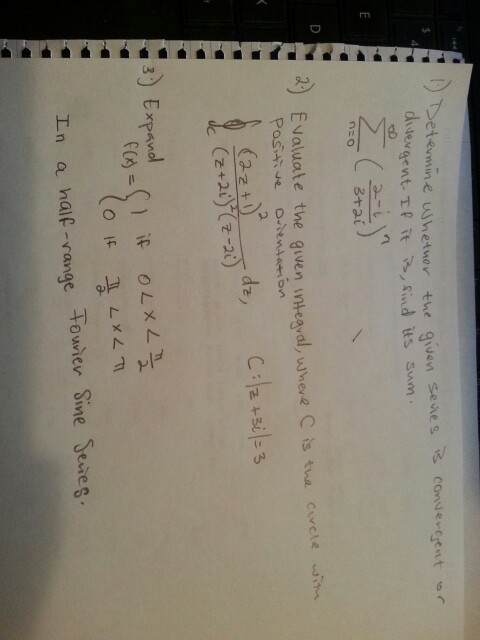 1) Determine whether the given series is convergent or
divergent. If it is, find its sum.
∞
∑ ( (2-i)/(3+2i) )ⁿ
n=0
2.) Evaluate the given integral, where C is the circle with
positive orientation
∮_C (2z+1)²/((z+2i)²(z-2i)) dz, C: |z+3i|=3
3.) Expand
f(x) = { 1 if 0<x<π/2
{ 0 if π/2<x<π
In a half-range Fourier Sine Series.